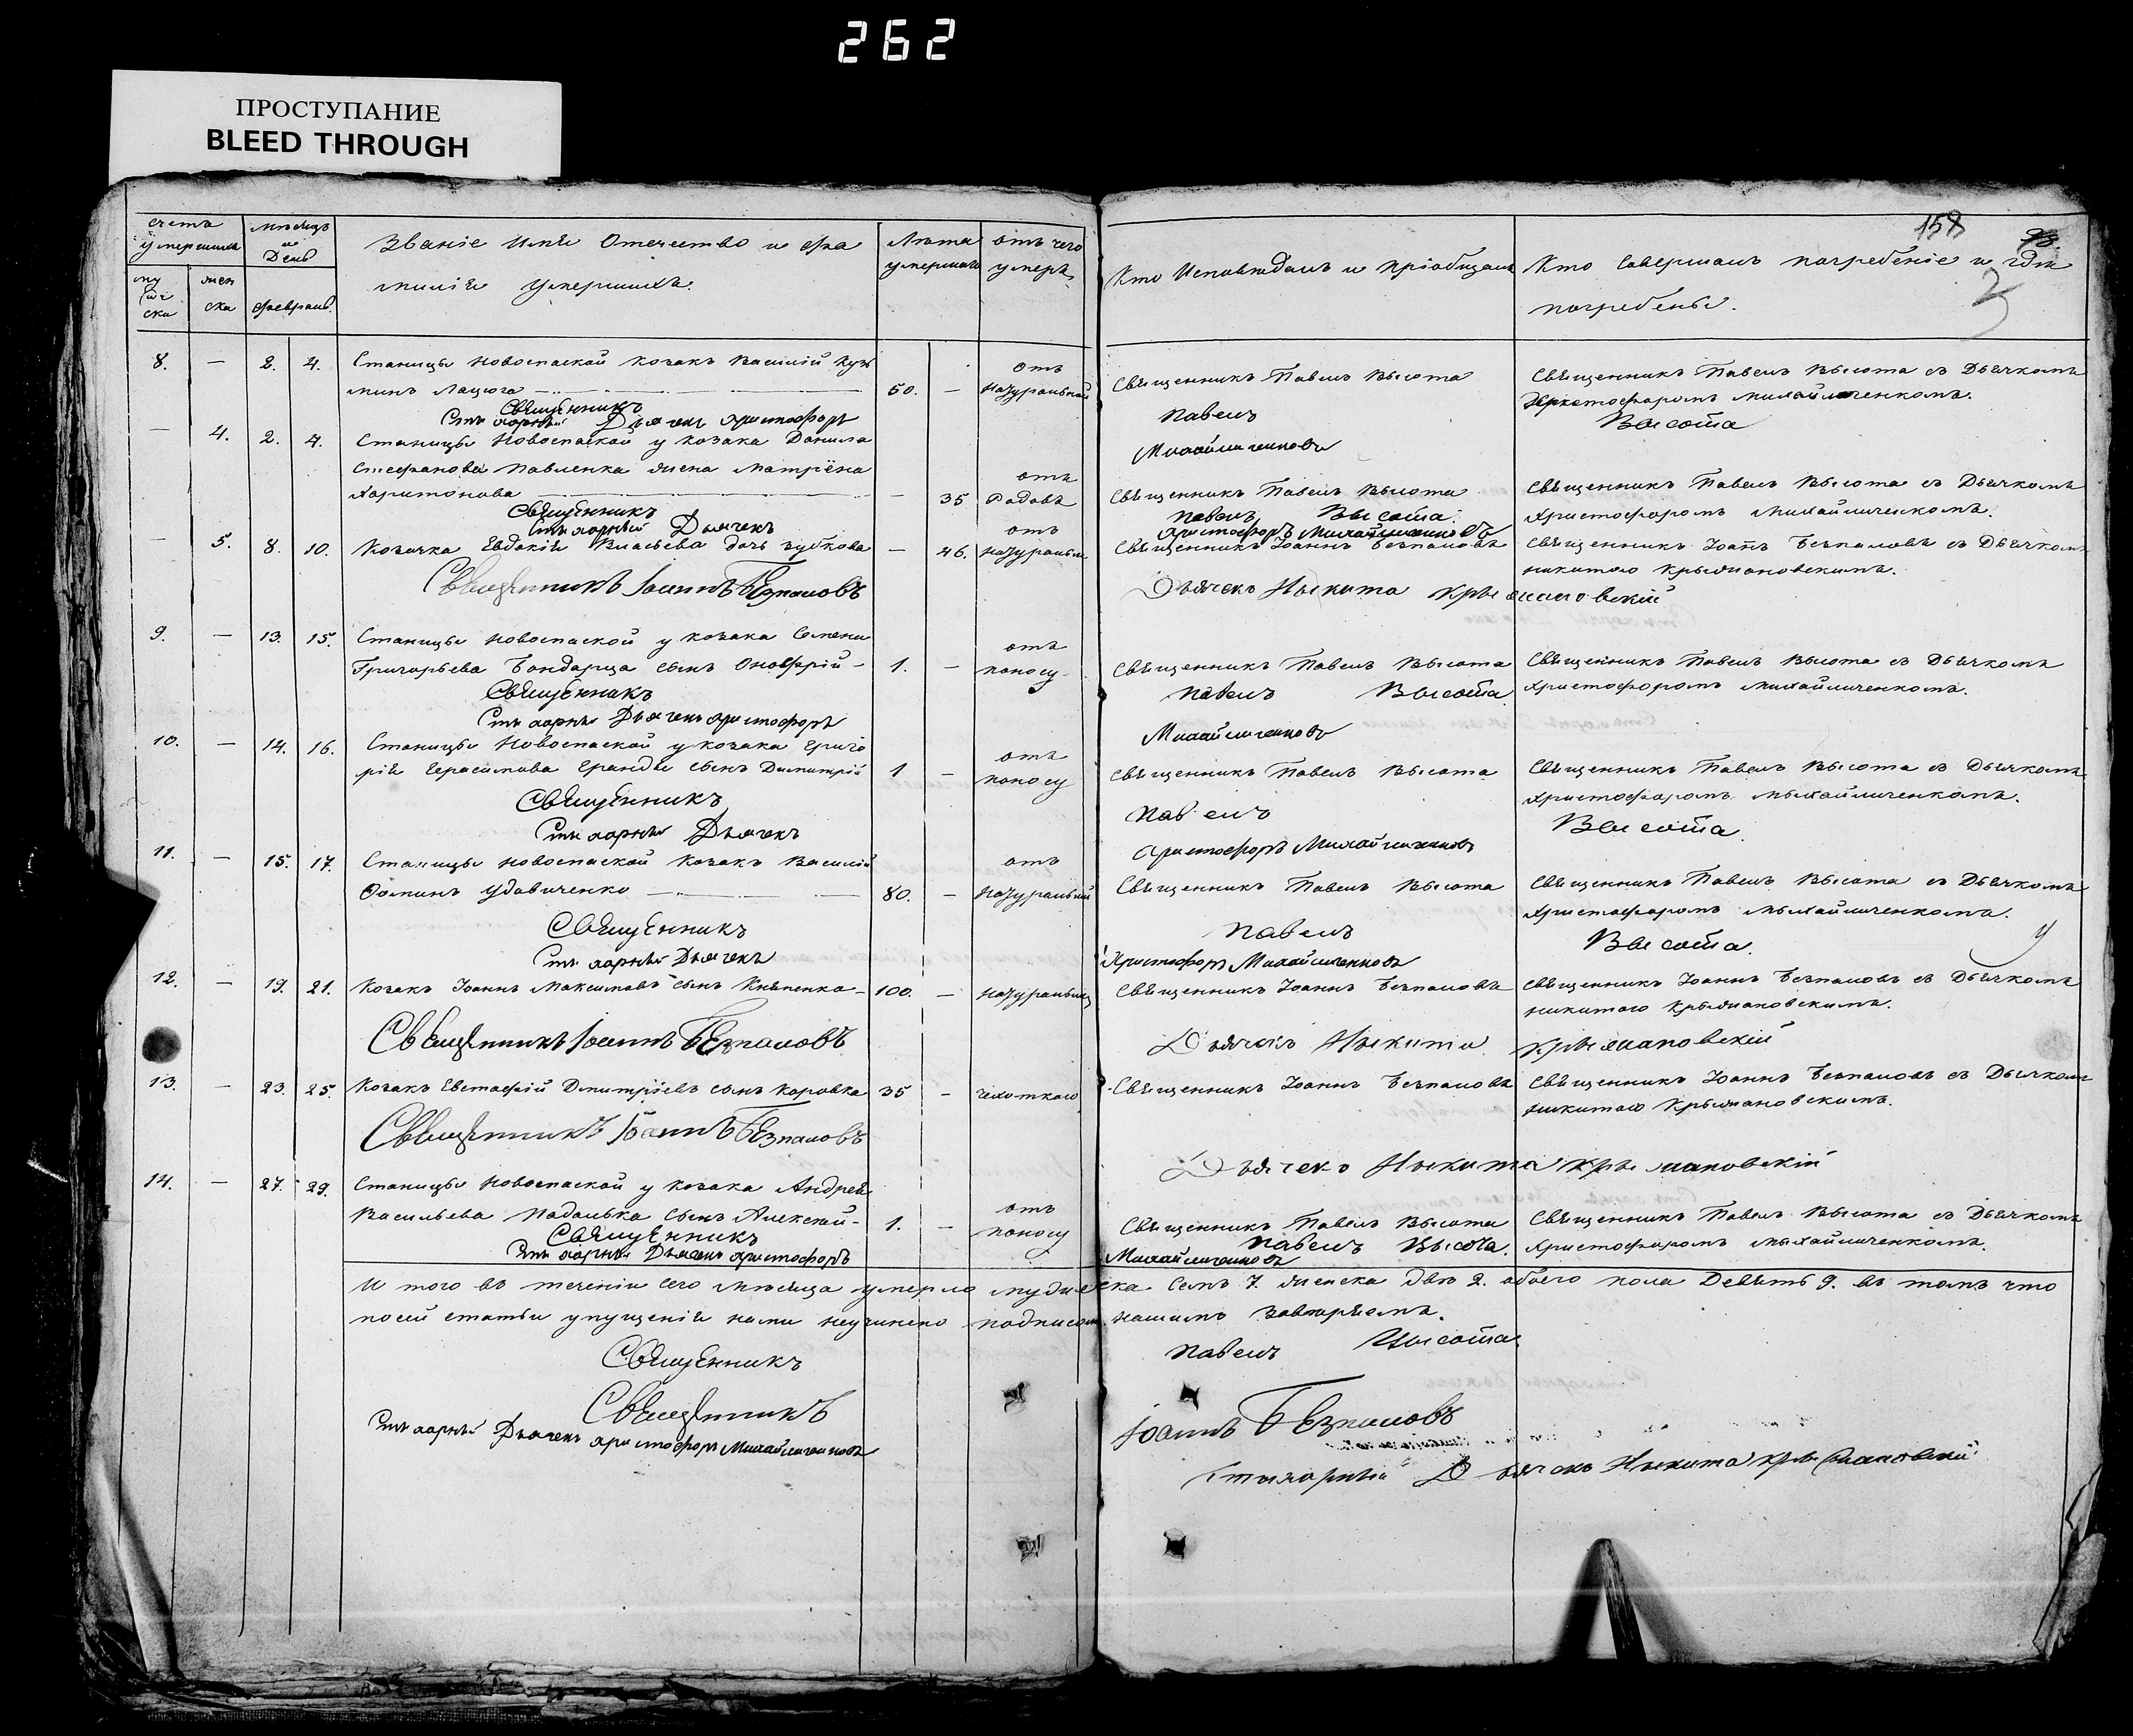 262
ПРОСТУПАНИЕ
BLEED THROUGH
счетъ умершихъ
мѣсяцъ и День
Званіе Имя Отечество и фа
милія умершихъ.
Лѣта умершаго
отъ чего умеръ
Кто Исповѣдалъ и пріобщалъ
Кто Совершалъ погребеніе и гдѣ
погребены.
158
му
жес
ска
жен
ска
февраль.
8. — 2. 4. Станицы Новоспаской козакъ Василій Кузь
минъ Лацюга 50. — отъ натуральной
Священникъ Павелъ Высота
Священникъ Павелъ Высота съ Дьячкомъ
Христофоромъ Михайличенкомъ.
Священникъ Павелъ Высота
Стихарный Дьячекъ Христофоръ Михайличенковъ
— 4. 2. 4. Станицы Новоспаской у козака Данила
Стефанова Павленка жена Матрёна
Харитонова — 35 отъ Родовъ
Священникъ Павелъ Высота
Священникъ Павелъ Высота съ Дьячкомъ
Христофоромъ Михайличенкомъ.
Священникъ Павелъ Высота.
Стихарный Дьячекъ Христофоръ Михайличенковъ
— 5. 8. 10. Козачка Евдокія Власьева дочь Зубкова — 46. отъ натуральн
Священникъ Іоаннъ Безпаловъ
Священникъ Іоаннъ Безпаловъ съ Дьячком
Никитою Крыжановскимъ.
Священникъ Іоаннъ Безпаловъ
Дьячекъ Никита Крыжановскій
9. — 13. 15. Станицы Новоспаской у козака Семена
Григорьева Бондарца сынъ Онофрій 1. — отъ поносу
Священникъ Павелъ Высота
Священникъ Павелъ Высота съ Дьячкомъ
Христофоромъ Михайличенкомъ.
Священникъ Павелъ Высота
Стихарный Дьячекъ Христофоръ Михайличенковъ
10. — 14. 16. Станицы Новоспаской у козака Григо
рія Герасимова Гранды сынъ Димитрій 1 — отъ поносу
Священникъ Павелъ Высота
Священникъ Павелъ Высота съ Дьячкомъ
Христофоромъ Михайличенкомъ.
Священникъ Павелъ Высота.
Стихарный Дьячекъ Христофоръ Михайличенковъ
11. — 15. 17. Станицы Новоспаской козакъ Василій
Фоминъ Удовиченко 80. — отъ натуральный
Священникъ Павелъ Высота
Священникъ Павелъ Высота съ Дьячкомъ
Христофоромъ Михайличенкомъ.
Священникъ Павелъ Высота.
Стихарный Дьячекъ Христофоръ Михайличенковъ
12. — 19. 21. Козакъ Іоаннъ Максимовъ сынъ 100. — натуральный
Священникъ Іоаннъ Безпаловъ
Священникъ Іоаннъ Безпаловъ съ Дьячкомъ
Никитою Крыжановскимъ.
Священникъ Іоаннъ Безпаловъ
Дьячекъ Никита Крыжановскій
13. — 23. 25. Козакъ Евстафій Дмитріевъ сынъ Коровка 35 — чехоткою
Священникъ Іоаннъ Безпаловъ
Священникъ Іоаннъ Безпаловъ съ Дьячком
Никитою Крыжановскимъ.
Священникъ Іоаннъ Безпаловъ
Дьячекъ Никита Крыжановскій
14. — 27. 29. Станицы Новоспаской у козака Андрея
Васильева Падалька сынъ Алексѣй 1. — отъ поносу
Священникъ Павелъ Высота
Священникъ Павелъ Высота съ Дьячкомъ
Христофоромъ Михайличенкомъ.
Священникъ Павелъ Высота.
Стихарный Дьячекъ Христофоръ Михайличенковъ
И того въ теченіи сего мѣсяца умерло мужеска семъ 7. женска двѣ 2. обоего пола Девять 9. въ томъ что
посей статьи упущенія нами неучинено подписом нашимъ
Священникъ Павелъ Высота.
Священникъ Іоаннъ Безпаловъ
Стихарный Дьячекъ Христофоръ Михайличенковъ
Стихарный Дьячекъ Никита Крыжановскій